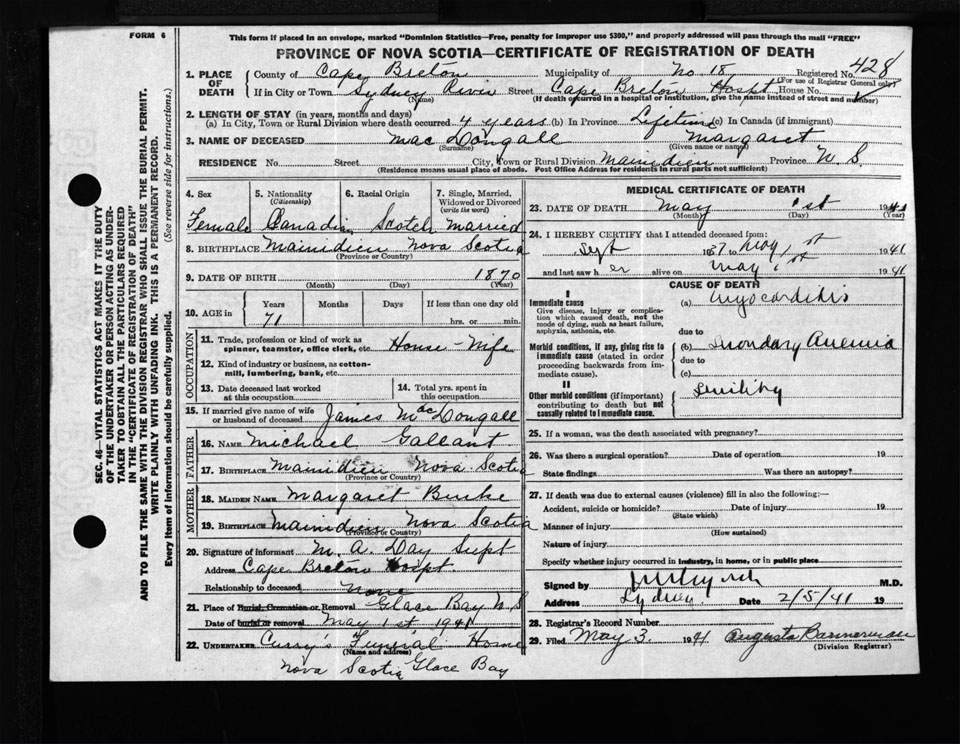 FORM 6
This form if placed in an envelope, marked "Dominion Statistics—Free, penalty for improper use $300," and properly addressed will pass through the mail "FREE"
PROVINCE OF NOVA SCOTIA—CERTIFICATE OF REGISTRATION OF DEATH
428
1. PLACE OF DEATH County of Cape Breton Municipality of No 18 Registered No.
(For use of Registrar General only)
If in City or Town Sydney River Street Cape Breton Hospt. House No.
(Name) (If death occurred in a hospital or institution, give the name instead of street and number)
2. LENGTH OF STAY (in years, months and days)
(a) In City, Town or Rural Division where death occurred 4 years (b) In Province Lifetime (c) In Canada (if immigrant)
3. NAME OF DECEASED Mac Dougall Margaret
(Surname) (Given name or names)
RESIDENCE No. Street City, Town or Rural Division Mainidieu Province N S.
(Residence means usual place of abode. Post Office Address for residents in rural parts not sufficient)
4. Sex 5. Nationality (Citizenship) 6. Racial Origin 7. Single, Married, Widowed or Divorced (write the word)
Female Canadian Scotch Married
8. BIRTHPLACE Mainidieu Nova Scotia
(Province or Country)
9. DATE OF BIRTH 1870
(Month) (Day) (Year)
10. AGE in Years Months Days If less than one day
71 hrs. or min.
OCCUPATION
11. Trade, profession or kind of work as spinner, teamster, office clerk, etc. House-Wife
12. Kind of industry or business, as cotton-mill, lumbering, bank, etc.
13. Date deceased last worked at this occupation
14. Total yrs. spent in this occupation
15. If married give name of wife or husband of deceased James MacDougall
FATHER
16. NAME Michael Gallant
17. BIRTHPLACE Mainidieu Nova Scotia
(Province or Country)
MOTHER
18. MAIDEN NAME Margaret Burke
19. BIRTHPLACE Mainidieu Nova Scotia
(Province or Country)
20. Signature of informant M. A. Day Supt
Address Cape Breton Hospt.
Relationship to deceased None
21. Place of Burial, Cremation or Removal Glace Bay N S
Date of burial or removal May 1st 1941
22. UNDERTAKER Curry's Funeral Home
(Name and address)
Nova Scotia Glace Bay
MEDICAL CERTIFICATE OF DEATH
23. DATE OF DEATH May 1st 194
(Month) (Day) (Year)
24. I HEREBY CERTIFY that I attended deceased from:
Sept 37 to May 1st 1941
and last saw her alive on May 1st 1941
CAUSE OF DEATH
I
Immediate cause
Give disease, injury or complication which caused death, not the mode of dying, such as heart failure, asphyxia, asthenia, etc.
(a) Myocarditis
due to
Morbid conditions, if any, giving rise to immediate cause (stated in order proceeding backwards from immediate cause).
(b) Secondary Anemia
due to
(c)
II
Other morbid conditions (if important) contributing to death but not causally related to immediate cause.
Senility
25. If a woman, was the death associated with pregnancy?
26. Was there a surgical operation? Date of operation 19
State findings Was there an autopsy?
27. If death was due to external causes (violence) fill in also the following:—
Accident, suicide or homicide? Date of injury 19
(State which)
Manner of injury
(How sustained)
Nature of injury
Specify whether injury occurred in industry, in home, or in public place
Signed by M.D.
Address Sydney. Date 2/5/41 19
28. Registrar's Record Number
29. Filed May 3 1941 Augusta Bannerman
(Division Registrar)
SEC. 46—VITAL STATISTICS ACT MAKES IT THE DUTY
OF THE UNDERTAKER OR PERSON ACTING AS UNDER-
TAKER TO OBTAIN ALL THE PARTICULARS REQUIRED
IN THE "CERTIFICATE OF REGISTRATION OF DEATH"
AND TO FILE THE SAME WITH THE DIVISION REGISTRAR WHO SHALL ISSUE THE BURIAL PERMIT.
WRITE PLAINLY WITH UNFADING INK. THIS IS A PERMANENT RECORD.
Every item of Information should be carefully supplied. (See reverse side for instructions.)